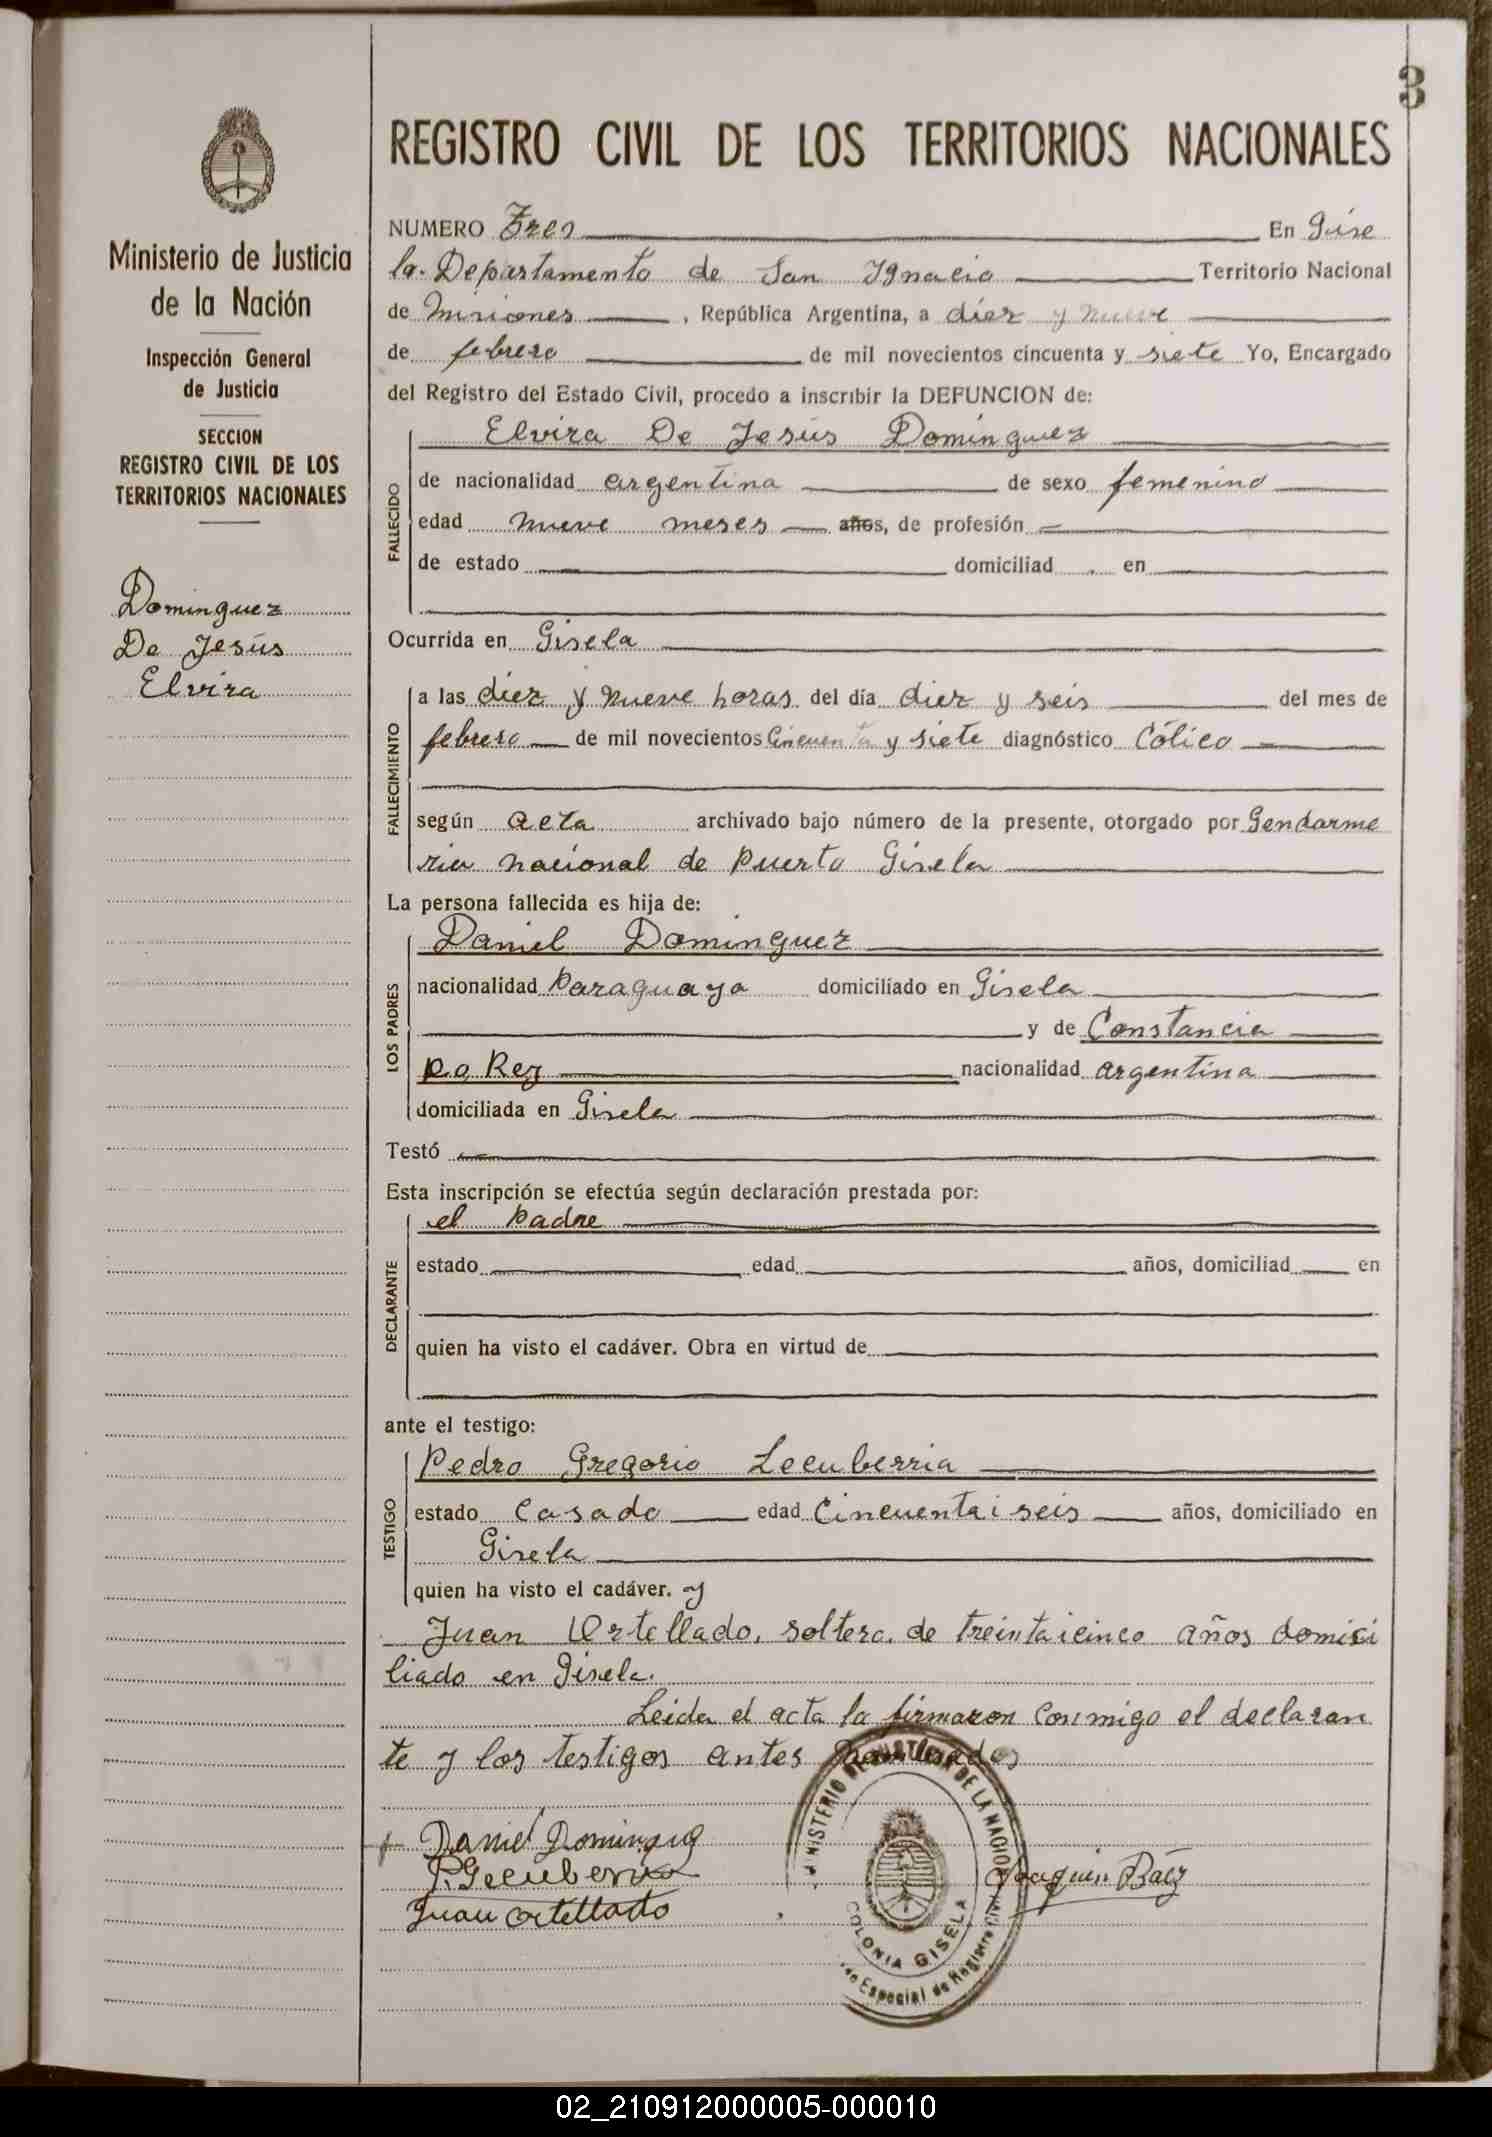 3
REGISTRO CIVIL DE LOS TERRITORIOS NACIONALES
Ministerio de Justicia
de la Nación
Inspección General
de Justicia
SECCION
REGISTRO CIVIL DE LOS
TERRITORIOS NACIONALES
Dominguez
De Jesús
Elvira
NUMERO Tres En Gise
la. Departamento de San Ignacio Territorio Nacional
de Misiones, República Argentina, a diez y nueve
de febrero de mil novecientos cincuenta y siete Yo, Encargado
del Registro del Estado Civil, procedo a inscribir la DEFUNCION de:
Elvira De Jesús Dominguez
FALLECIDO
de nacionalidad argentina de sexo femenino
edad nueve meses años, de profesión
de estado domiciliad en
Ocurrida en Gisela
FALLECIMIENTO
a las diez y nueve horas del día diez y seis del mes de
febrero de mil novecientos Cincuenta y siete diagnóstico Cólico
según acta archivado bajo número de la presente, otorgado por Gendarme
ria nacional de Puerto Gisela
La persona fallecida es hija de:
LOS PADRES
Daniel Dominguez
nacionalidad Paraguaya domiciliado en Gisela
y de Constancia
nacionalidad argentina
domiciliada en Gisela
Testó
Esta inscripción se efectúa según declaración prestada por:
DECLARANTE
el Padre
estado edad años, domiciliad en
quien ha visto el cadáver. Obra en virtud de
ante el testigo:
TESTIGO
Pedro Gregorio Lecuberria
estado Casado edad Cincuenta i seis años, domiciliado en
Gisela
quien ha visto el cadáver. y
Juan Ortellado, soltero, de treinta icinco años domici
liado en Gisela.
Leida el acta la firmaron conmigo el declaran
te y los testigos antes nombrados
Daniel Domingues
P.G Lecuberria
Juan Ortellado
Joaquin Báez
MINISTERIO DE JUSTICIA DE LA NACION
COLONIA GISELA
Especial de Registro Civil
02_210912000005-000010